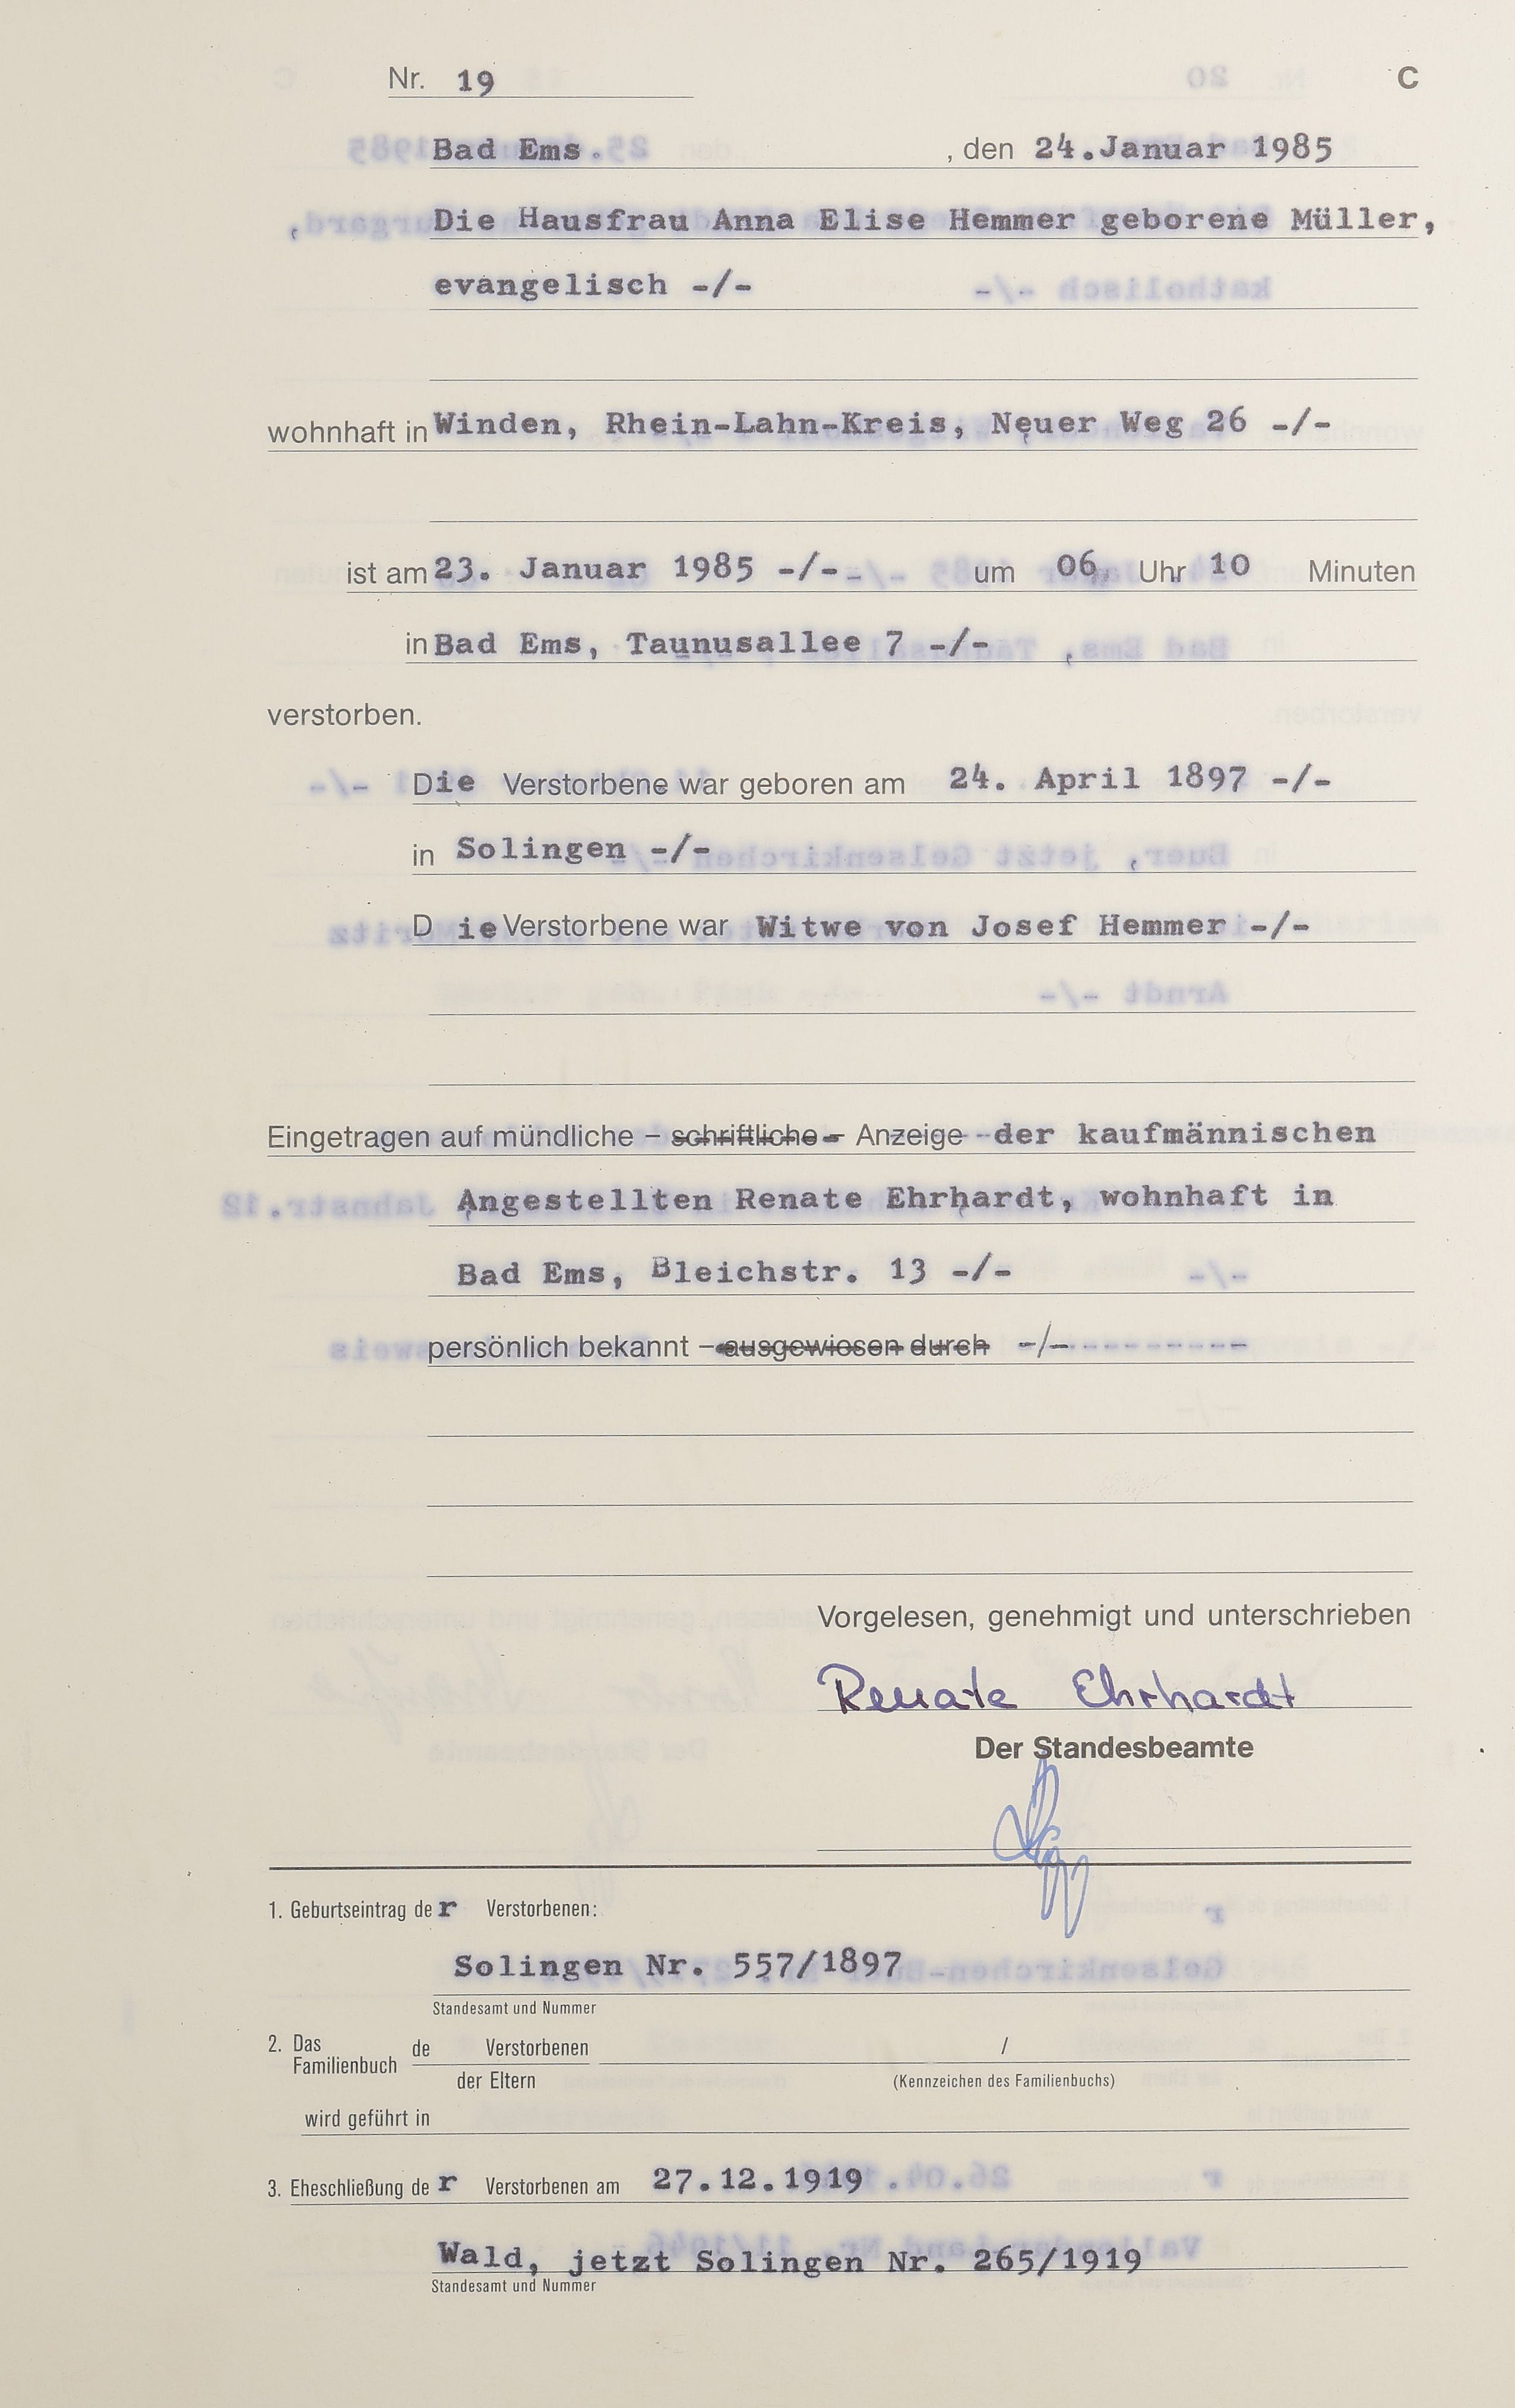 Nr. 19 C
Bad Ems , den 24.Januar 1985
Die Hausfrau Anna Elise Hemmer geborene Müller,
evangelisch -/-
wohnhaft in Winden, Rhein-Lahn-Kreis, Neuer Weg 26 -/-
ist am 23. Januar 1985 -/- um 06 Uhr 10 Minuten
in Bad Ems, Taunusallee 7 -/-
verstorben.
Die Verstorbene war geboren am 24. April 1897 -/-
in Solingen -/-
Die Verstorbene war Witwe von Josef Hemmer -/-
Eingetragen auf mündliche – schriftliche – Anzeige der kaufmännischen
Angestellten Renate Ehrhardt, wohnhaft in
Bad Ems, Bleichstr. 13 -/-
persönlich bekannt – ausgewiesen durch -/-
Vorgelesen, genehmigt und unterschrieben
Renate Ehrhardt
Der Standesbeamte
1. Geburtseintrag der Verstorbenen:
Solingen Nr. 557/1897
Standesamt und Nummer
2. Das Familienbuch de Verstorbenen /
der Eltern (Kennzeichen des Familienbuchs)
wird geführt in
3. Eheschließung der Verstorbenen am 27.12.1919
Wald, jetzt Solingen Nr. 265/1919
Standesamt und Nummer